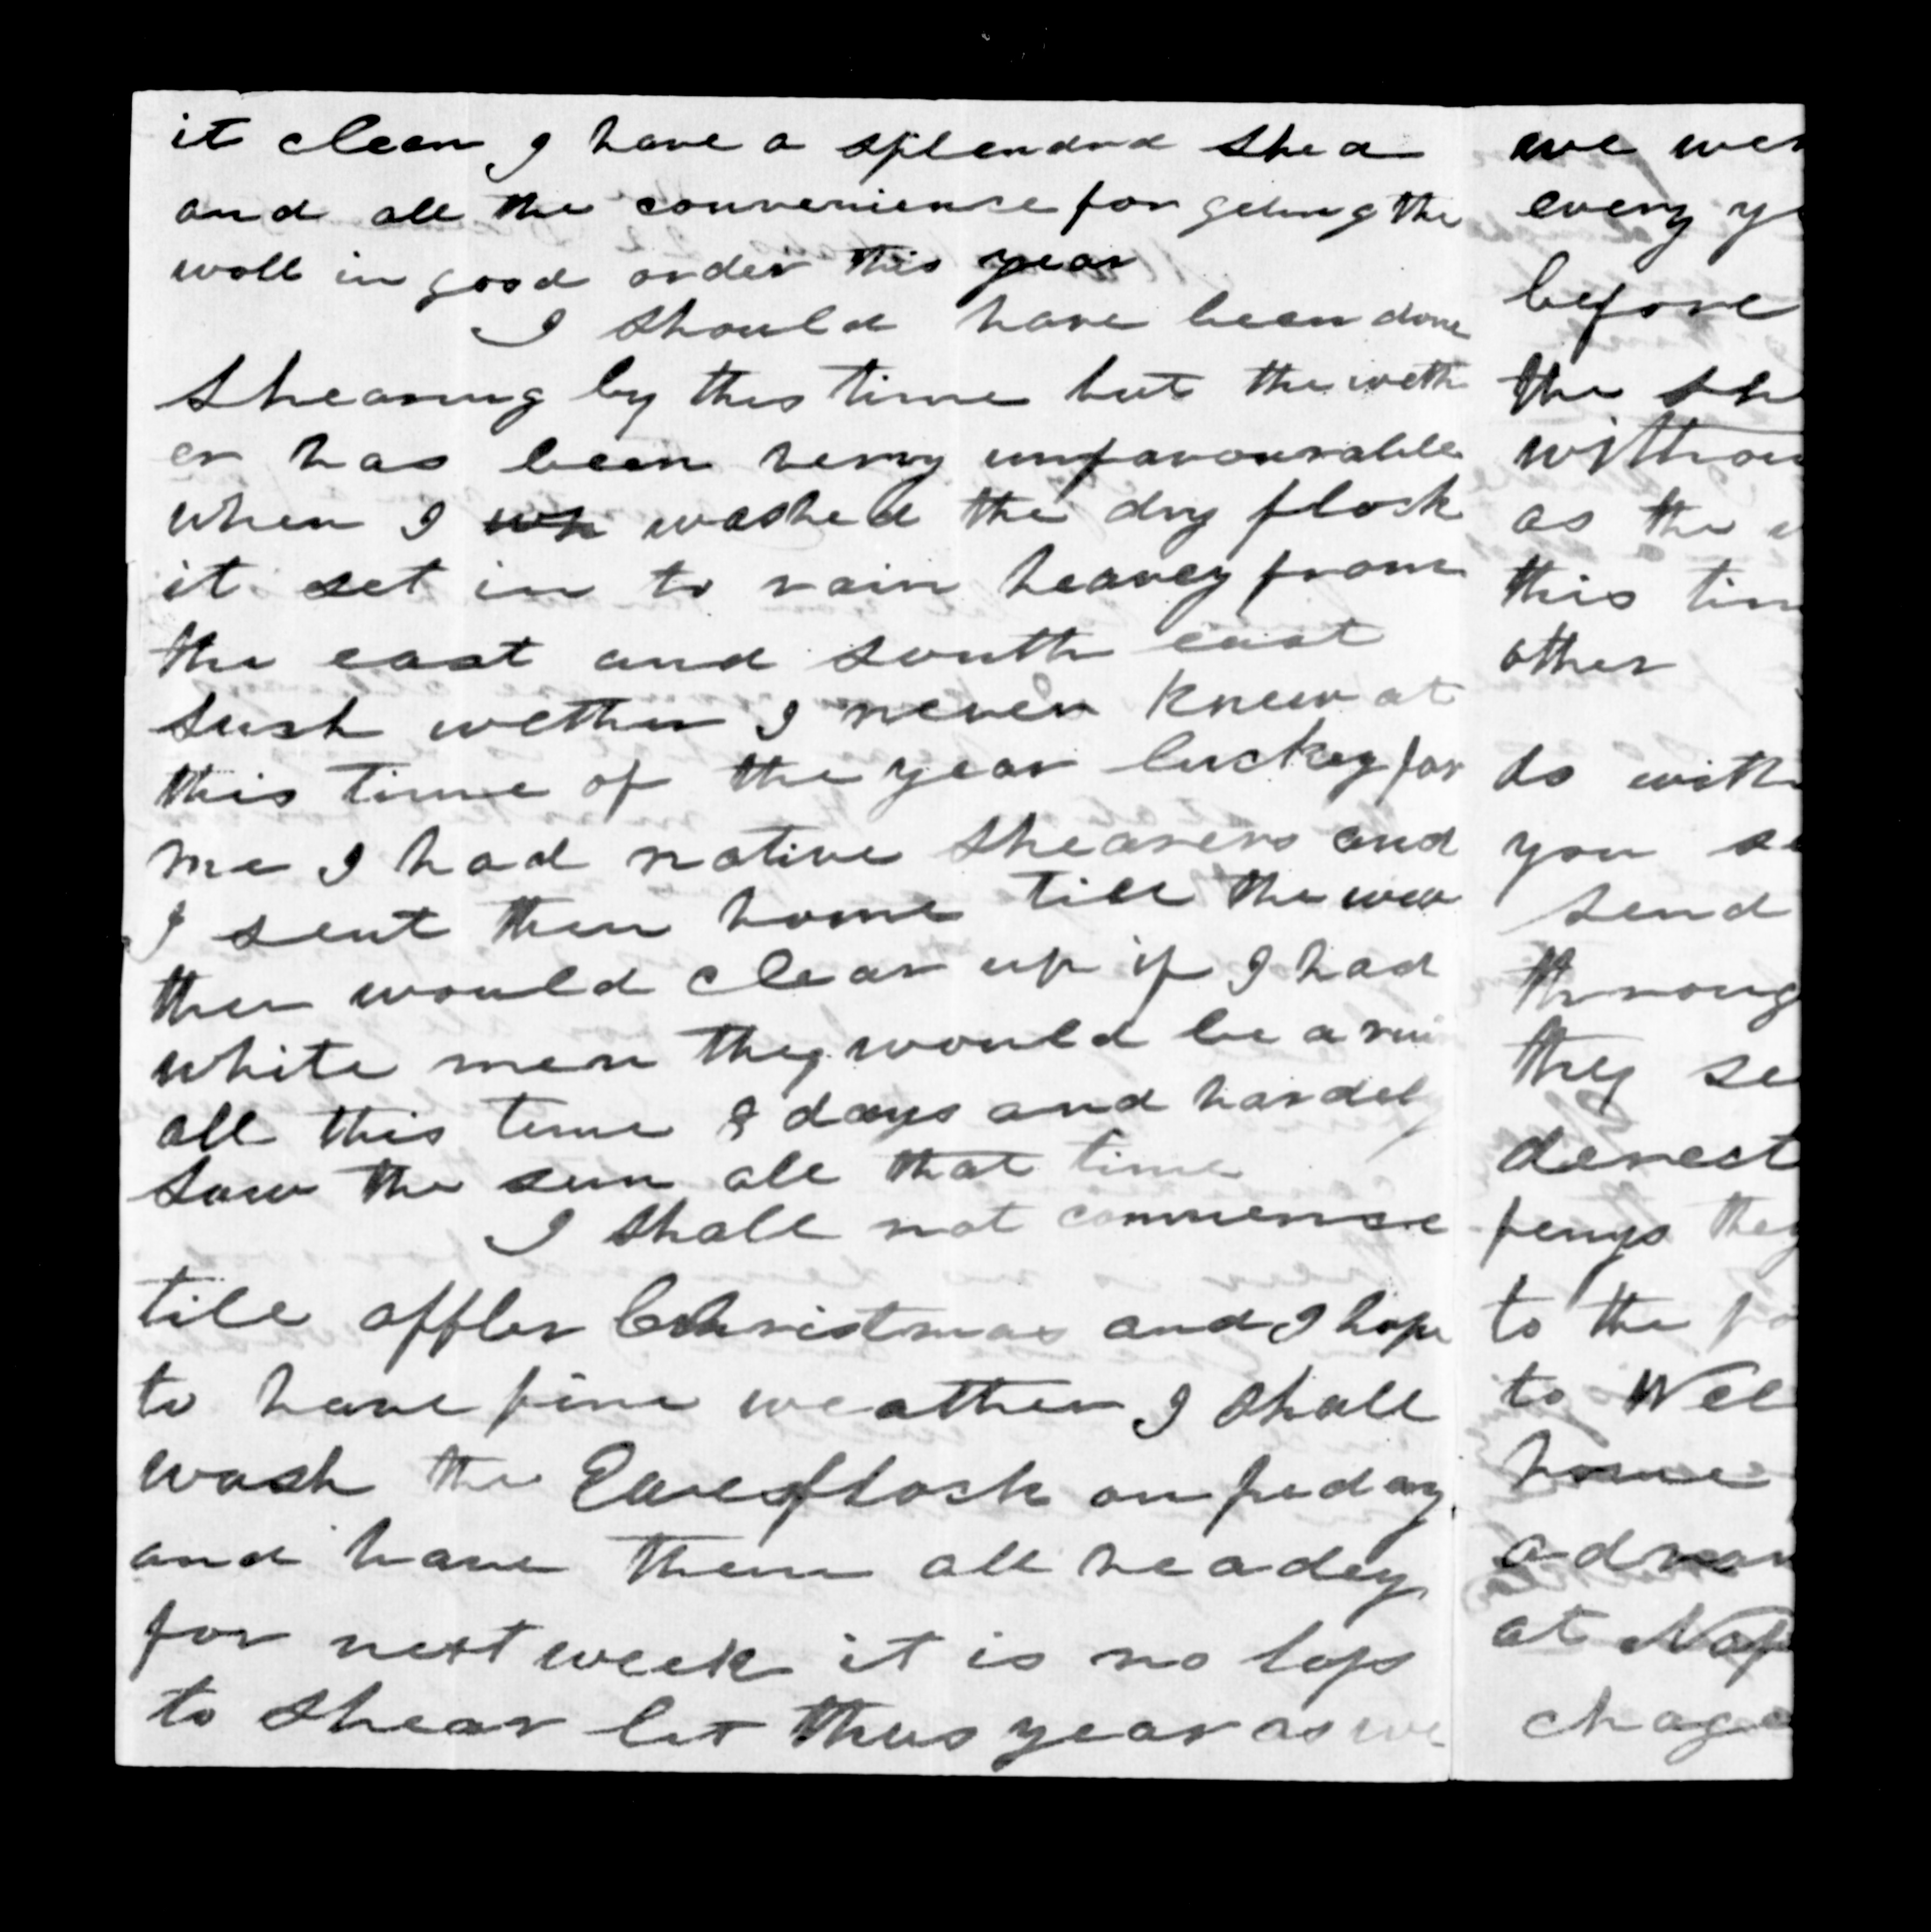 it clean I have a splendid shed
and all the convenience for geting the
woll in good order this year
I should have been done
shearing by this time but the weth
er has been very unfavourable
when I wh washed the dry flock
it set in to rain heavey from
the east and south east
such wether I never knew at
this time of the year luckey for
me I had native shearers and
I sent them home till the wea
ther would clear up if I had
white men they would be a rui
all this time 8 days and hardel
saw the sun all that time
I shall not commense
till affter Christmas and I hope
to have fine weather I shall
wash the Ewes flock on
and have them all readey
for next week it is no loss
to shear let this year as we
we wer
every ye
before
the sh
withou
as the
this tim
other
do with
you se
send
throug
they se
derect
the
to the
to Wel
home
at Nap
chage